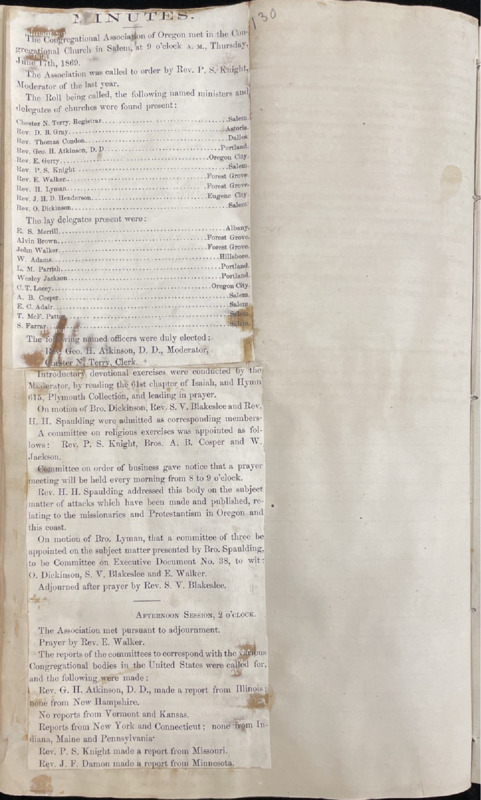 130
MINUTES.
The Congregational Association of Oregon met in the Con-
gregational Church in Salem, at 9 o'clock A. M., Thursday,
June 17th, 1869.
The Association was called to order by Rev. P. S. Knight,
Moderator of the last year.
The Roll being called, the following named ministers and
delegates of churches were found present:
Chester N. Terry, Registrar....Salem.
Rev. D. B. Gray....Astoria.
Rev. Thomas Condon....Dalles.
Rev. Geo. H. Atkinson, D. D....Portland.
Rev. E. Gerry....Oregon City.
Rev. P. S. Knight....Salem.
Rev. E. Walker....Forest Grove.
Rev. H. Lyman....Forest Grove.
Rev. J. H. D. Henderson....Eugene City.
Rev. O. Dickinson....Salem.
The lay delegates present were:
E. S. Merrill....Albany.
Alvin Brown....Forest Grove.
John Walker....Forest Grove.
W. Adams....Hillsboro.
L. M. Parrish....Portland.
Wesley Jackson....Portland.
C. T. Locey....Oregon City.
A. B. Cosper....Salem.
E. C. Adair....Salem.
T. McF. Patton....Salem.
S. Farrar....Salem.
The following named officers were duly elected:
Rev. Geo. H. Atkinson, D. D., Moderator,
Chester N. Terry, Clerk.
Introductory devotional exercises were conducted by the
Moderator, by reading the 61st chapter of Isaiah, and Hymn
615, Plymouth Collection, and leading in prayer.
On motion of Bro. Dickinson, Rev. S. V. Blakeslee and Rev.
H. H. Spaulding were admitted as corresponding members.
A committee on religious exercises was appointed as fol-
lows: Rev. P. S. Knight, Bros. A. B. Cosper and W.
Jackson.
Committee on order of business gave notice that a prayer
meeting will be held every morning from 8 to 9 o'clock.
Rev. H. H. Spaulding addressed this body on the subject
matter of attacks which have been made and published, re-
lating to the missionaries and Protestantism in Oregon and
this coast.
On motion of Bro. Lyman, that a committee of three be
appointed on the subject matter presented by Bro. Spaulding,
to be Committee on Executive Document No. 38, to wit:
O. Dickinson, S. V. Blakeslee and E. Walker.
Adjourned after prayer by Rev. S. V. Blakeslee.
AFTERNOON SESSION, 2 O'CLOCK.
The Association met pursuant to adjournment.
Prayer by Rev. E. Walker.
The reports of the committees to correspond with the various
Congregational bodies in the United States were called for,
and the following were made:
Rev. G. H. Atkinson, D. D., made a report from Illinois;
none from New Hampshire.
No reports from Vermont and Kansas.
Reports from New York and Connecticut; none from In-
diana, Maine and Pennsylvania.
Rev. P. S. Knight made a report from Missouri.
Rev. J. F. Damon made a report from Minnesota.